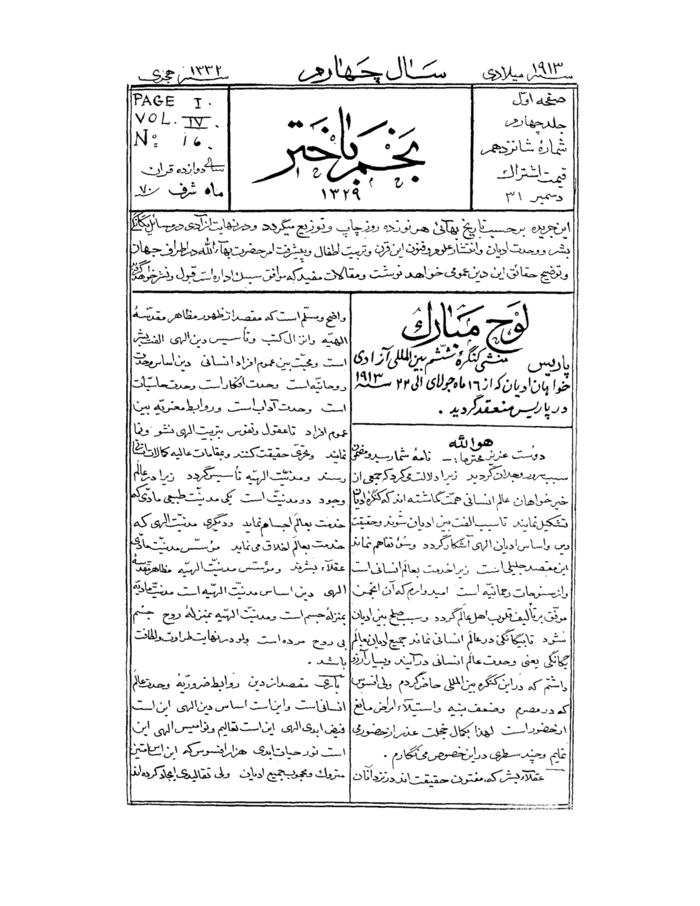 سنه ۱۹۱۳ میلادی
سال چهارم
سنه ۱۳۳۲ هجری
صفحه اوّل
جلد چهارم
شمارهٔ شانزدهم
قیمت اشتراک
دسمبر ۳۱
نجم باختر
۱۳۲۹
PAGE I.
VOL. IV.
No 16.
سالی دوازده قران
ماه شرف ۷۰
این جریده برحسب تاریخ بهائی هر نوزده روز چاپ و توزیع میگردد و در نهایت آزادی در وسائل یگانگی
بشر و وحدت ادیان و انتشار علوم و فنون این قرن و تربیت اطفال و پیشرفت امر حضرت بهآءالله در اطراف جهان
و توضیح حقائق این دین عمومی خواهد نوشت و مقالات مفیده که موافق مسلک اداره است قبول و نشر خواهد
لوح مبارک
پاریس منشی کنگرهٔ ششم بین‌المللی آزادی
خواهان ادیان که از ۱۶ ماه جولای الی ۲۲ سنه ۱۹۱۳
در پاریس منعقد گردید .
هوالله
دوست عزیز محترما :ـ نامهٔ شما رسید و مضمون
سبب سرور وجدان گردید زیرا دلالت میکرد که جمعی از
خیرخواهان عالم انسانی همت گماشته‌اند که کنگرهٔ ادیان
تشکیل نمایند تا سبب الفت بین ادیان شوند و حقیقت
دین و اساس ادیان الهی آشکار گردد و سوء تفاهم نماند
این مقصد جلیلی است زیرا خدمت بعالم انسانی است
و از سنوحات رحمانیّه است امیدوارم که آن انجمن
موفّق بر تألیف قلوب اهل عالم گردد و سبب صلح بین ادیان
شود تا بیگانگی در عالم انسانی نماند جمیع ادیان بعالم
یگانگی یعنی وحدت عالم انسانی درآیند و بسیار آرزو
داشتم که در این کنگره بین‌المللی حاضر گردم ولی افسوس
که در مصرم و ضعف بنیه و استیلاء امراض مانع
از حضور است لهذا بکمال خجلت عذر از حضور می
نمایم و چند سطری در این خصوص می‌نگارم .
عقلاء بشر که مفتون حقیقت‌اند در نزد آنان
واضح و مسلم است که مقصد از ظهور مظاهر مقدسهٔ
الهیّه و انزال کتب و تأسیس دین الهی الفت بشر
است و محبّت بین عموم افراد انسانی دین اساس وحدت
روحانیّه است وحدت افکار است وحدت حاسیات
است وحدت آداب است و روابط معنویّه بین
عموم افراد تا عقول و نفوس بتربیت الهی نشو و نما
نمایند و تحرّی حقیقت کنند و بمقامات عالیه کمالات انسانی
رسند و مدنیّت الهیّه تأسیس گردد زیرا در عالم
وجود دو مدنیّت است یکی مدنیّت طبیعی مادّی که
خدمت بعالم اجسام نماید و دیگری مدنیّت الهی که
خدمت بعالم اخلاق می نماید مؤسّس مدنیّت مادّی
عقلاء بشرند و مؤسّس مدنیّت الهیّه مظاهر مقدسهٔ
الهی دین اساس مدنیّت الهیّه است مدنیّت مادیّه
بمنزلهٔ جسم است و مدنیّت الهیّه بمنزلهٔ روح جسم
بی روح مرده است ولو در نهایت طراوت و لطافت
باشد .
باری مقصد از دین روابط ضروریّهٔ وحدت عالم
انسانی است و این است اساس دین الهی این است
فیض ابدی الهی این است تعالیم و نوامیس الهی این
است نور حیات ابدی هزار افسوس که این اساس متین
متروک و محجوب جمیع ادیان ولی تقالیدی ایجاد کرده‌اند